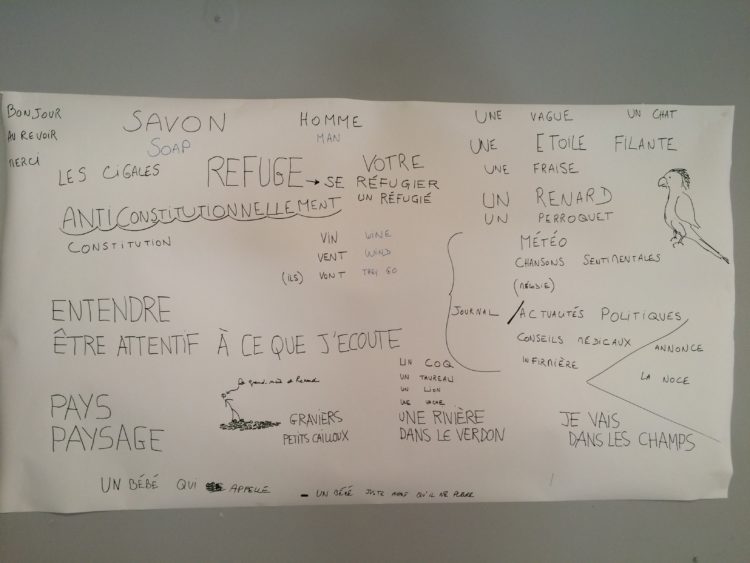 BONJOUR
AU REVOIR
MERCI
SAVON
SOAP
HOMME
MAN
LES CIGALES
REFUGE → SE RÉFUGIER
VOTRE
UN RÉFUGIÉ
ANTICONSTITUTIONNELLEMENT
CONSTITUTION
VIN WINE
VENT WIND
(ILS) VONT THEY GO
UNE VAGUE
UN CHAT
UNE ETOILE FILANTE
UNE FRAISE
UN RENARD
UN PERROQUET
JOURNAL
MÉTÉO
CHANSONS SENTIMENTALES
ACTUALITÉS POLITIQUES
CONSEILS MÉDICAUX
INFIRMIÈRE
ANNONCE
LA NOCE
ENTENDRE
ÊTRE ATTENTIF À CE QUE J'ECOUTE
PAYS
PAYSAGE
GRAVIERS
PETITS CAILLOUX
UN COQ
UN TAUREAU
UN LION
UNE VACHE
UNE RIVIÈRE
DANS LE VERDON
JE VAIS
DANS LES CHAMPS
UN BÉBÉ QUI APPELLE
- UN BÉBÉ JUSTE AVANT QU'IL NE PLEURE